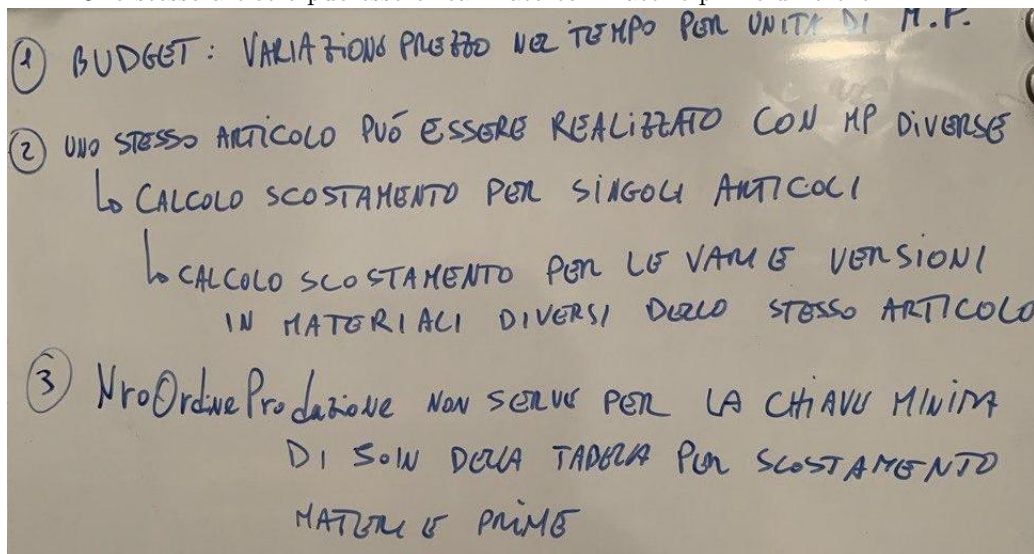 ① BUDGET: VARIAZIONE PREZZO NEL TEMPO PER UNITÀ DI M.P.
② UNO STESSO ARTICOLO PUÓ ESSERE REALIZZATO CON MP DIVERSE
↳ CALCOLO SCOSTAMENTO PER SINGOLI ARTICOLI
↳ CALCOLO SCOSTAMENTO PER LE VARIE VERSIONI
IN MATERIALI DIVERSI DELLO STESSO ARTICOLO
③ NroOrdineProduzione NON SERVE PER LA CHIAVE MINIMA
DI JOIN DELLA TABELLA PER SCOSTAMENTO
MATERIE PRIME